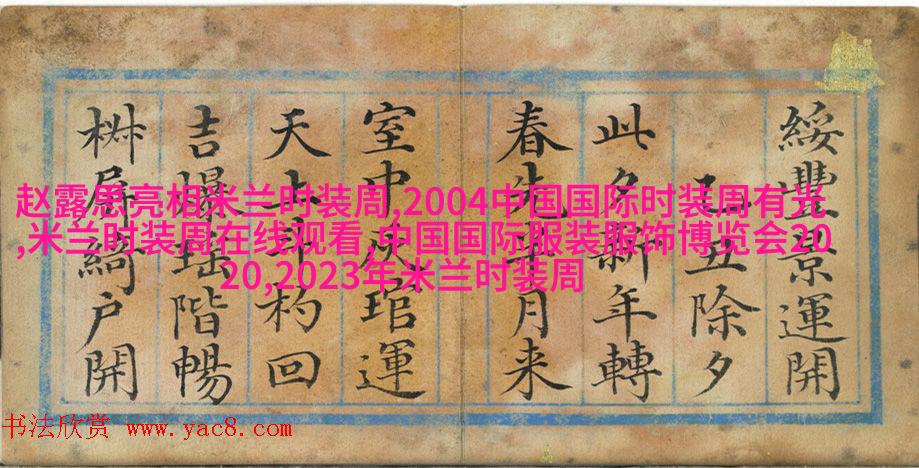 綏豐景運開
丑除夕
此夕新年轉
春先半月来
室中灰琯運
天上斗杓回
吉爆瑶階暢
屏綺户開
赵露思亮相米兰时装周,2004中国国际时装周有光
,米兰时装周在线观看,中国国际服装服饰博览会20
20,2023年米兰时装周
书法欣赏 www.yac8.com